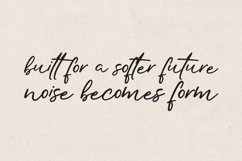 built for a softer future
noise becomes form